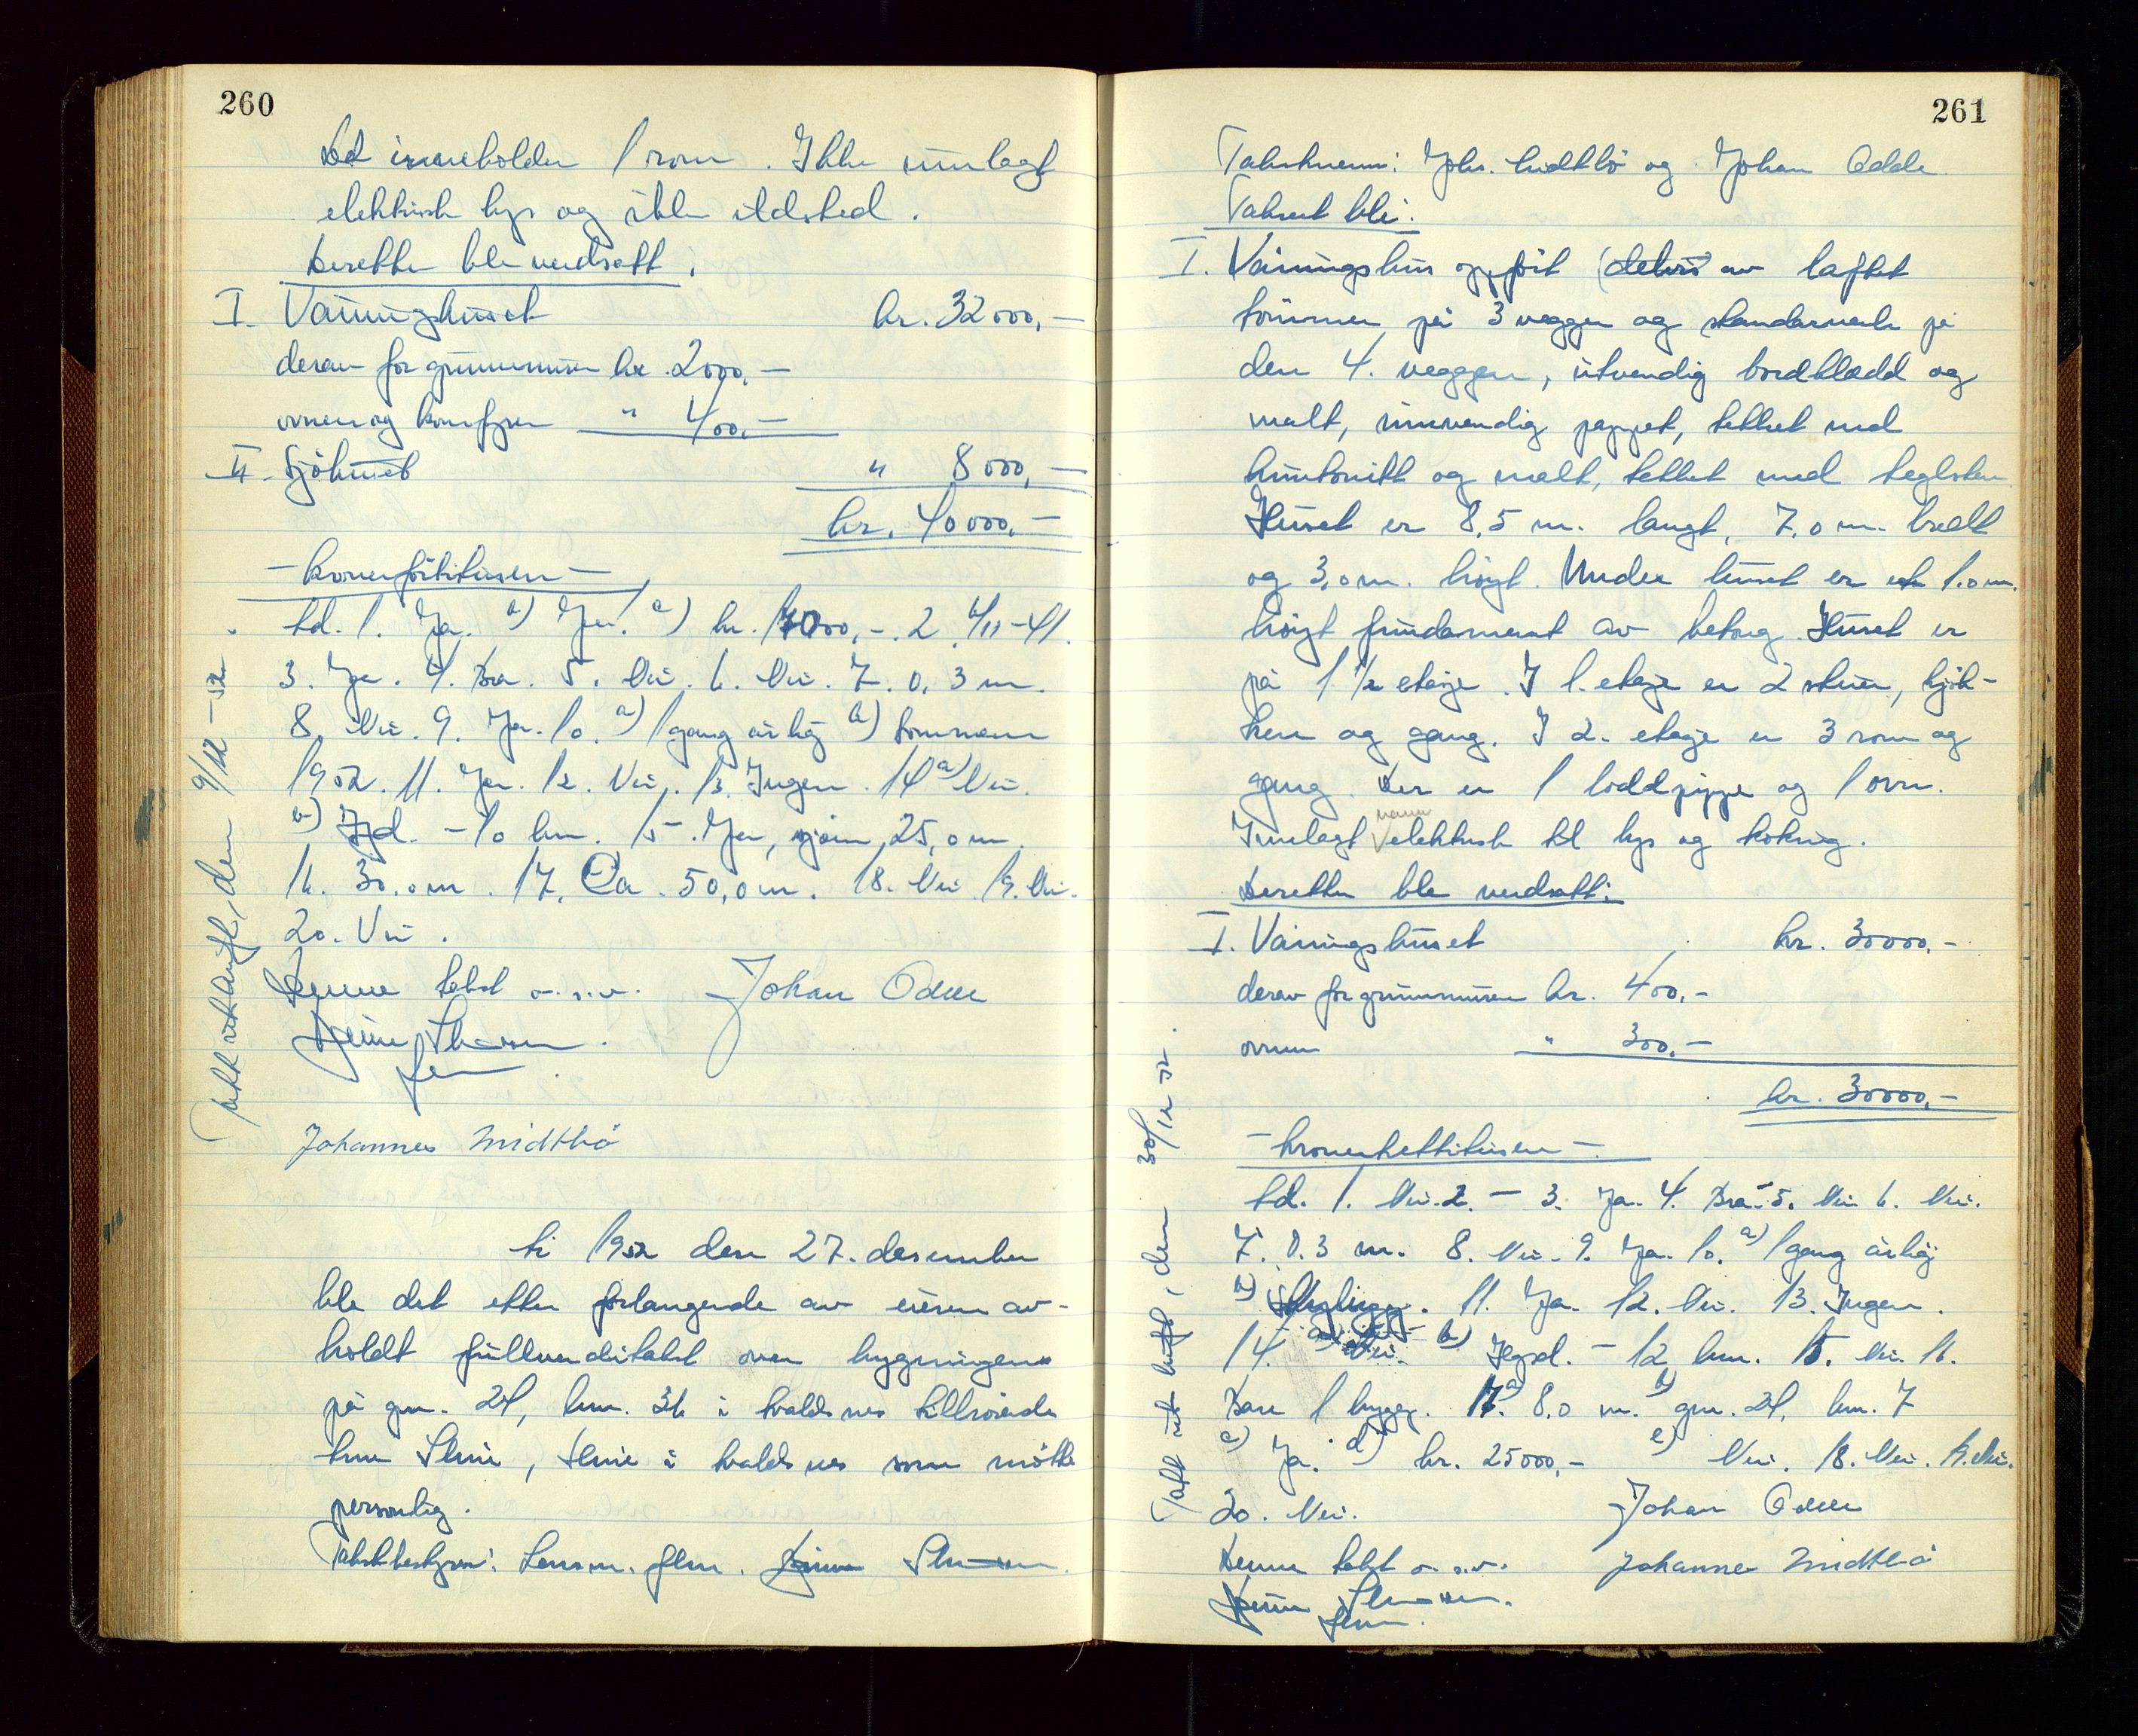 260
Det inneholder 1 rom. Ikke innlagt
elektrisk lys og ikke ildsted.
Deretter ble verdsatt:
I. Våningshuset kr. 32000,-
derav for grunnmuren kr. 2000,-
ovnen og komfyren " 400,-
II. Sjøhuset " 8000,-
kr. 40000.-
- kronerførtitusen -
td. 1. Ja. a) Ja. kr. 2. 4/11-41.
3. Ja. 4. Bra. 5. Nei. 6. Nei. 7. 0,3 m.
8. Nei. 9. Ja. 10. a) 1 gang årlig b) Sommeren
1952. 11. Ja. 12. Nei. 13. Ingen. 14 a) Nei.
b) - 10 km. 15. Ja, sjøen, 25,0 m.
16. 30,0 m. 17. Ca. 50,0 m. 18. Nei. 19. Nei.
20. Nei.
Denne takst o.s.v. Johan Odden
Johannes Midtbø
Takst utskrift, den 9/12-52.
År 1952 den 27. desember
ble det etter forlangende av eieren av-
holdt fullverditakst over bygningene
på gnr. 24, bnr. 36 i tilhørende
som møtte
personlig.
Takstbestyrer: Lensm. flm.
261
Takstmenn: Johs. Midtbø og Johan Odde
Taksert ble:
I. Våningshus oppført (delvis av laftet
tømmer på 3 vegger og standarverk på
den 4. veggen, utvendig bordkledd og
malt, innvendig pappet, tekket med
huntonitt og malt, tekket med teglsten.
Huset er 8,5 m. langt, 7,0 m. bredt
og 3,0 m. høyt. Under huset er et 1.0 m.
høyt fundament av betong. Huset er
på 1 1/2 etasje. I 1. etasje er 2 stuer, kjøk-
ken og gang. I 2. etasje er 3 rom og
gang. Der er 1 loddpipe og 1 ovn.
Innlagt vann elektrisk til lys og koking.
Deretter ble verdsatt:
I. Våningshuset kr. 30000,-
derav for grunnmuren kr. 400,-
ovnen " 300,-
kr. 30000,-
- kronertrettitusen -
td. 1. Nei. 2. - 3. Ja. 4. Bra. 5. Nei. 6. Nei.
7. 0.3 m. 8. Nei. 9. Ja. 10. a) 1 gang årlig
b) 11. Ja. 12. Nei. 13. Ingen.
14. a) Nei. b) - 12 km. 15. Nei. 16.
Bare 1 bygg. 17. a) 8.0 m. b) gnr. 24, bnr. 7
c) Ja. d) kr. 25000,- e) Nei. 18. Nei. 19. Nei.
20. Nei. Johan Odden
Denne takst o.s.v. Johannes Midtbø
Takst utskrift, den 30/12 52.